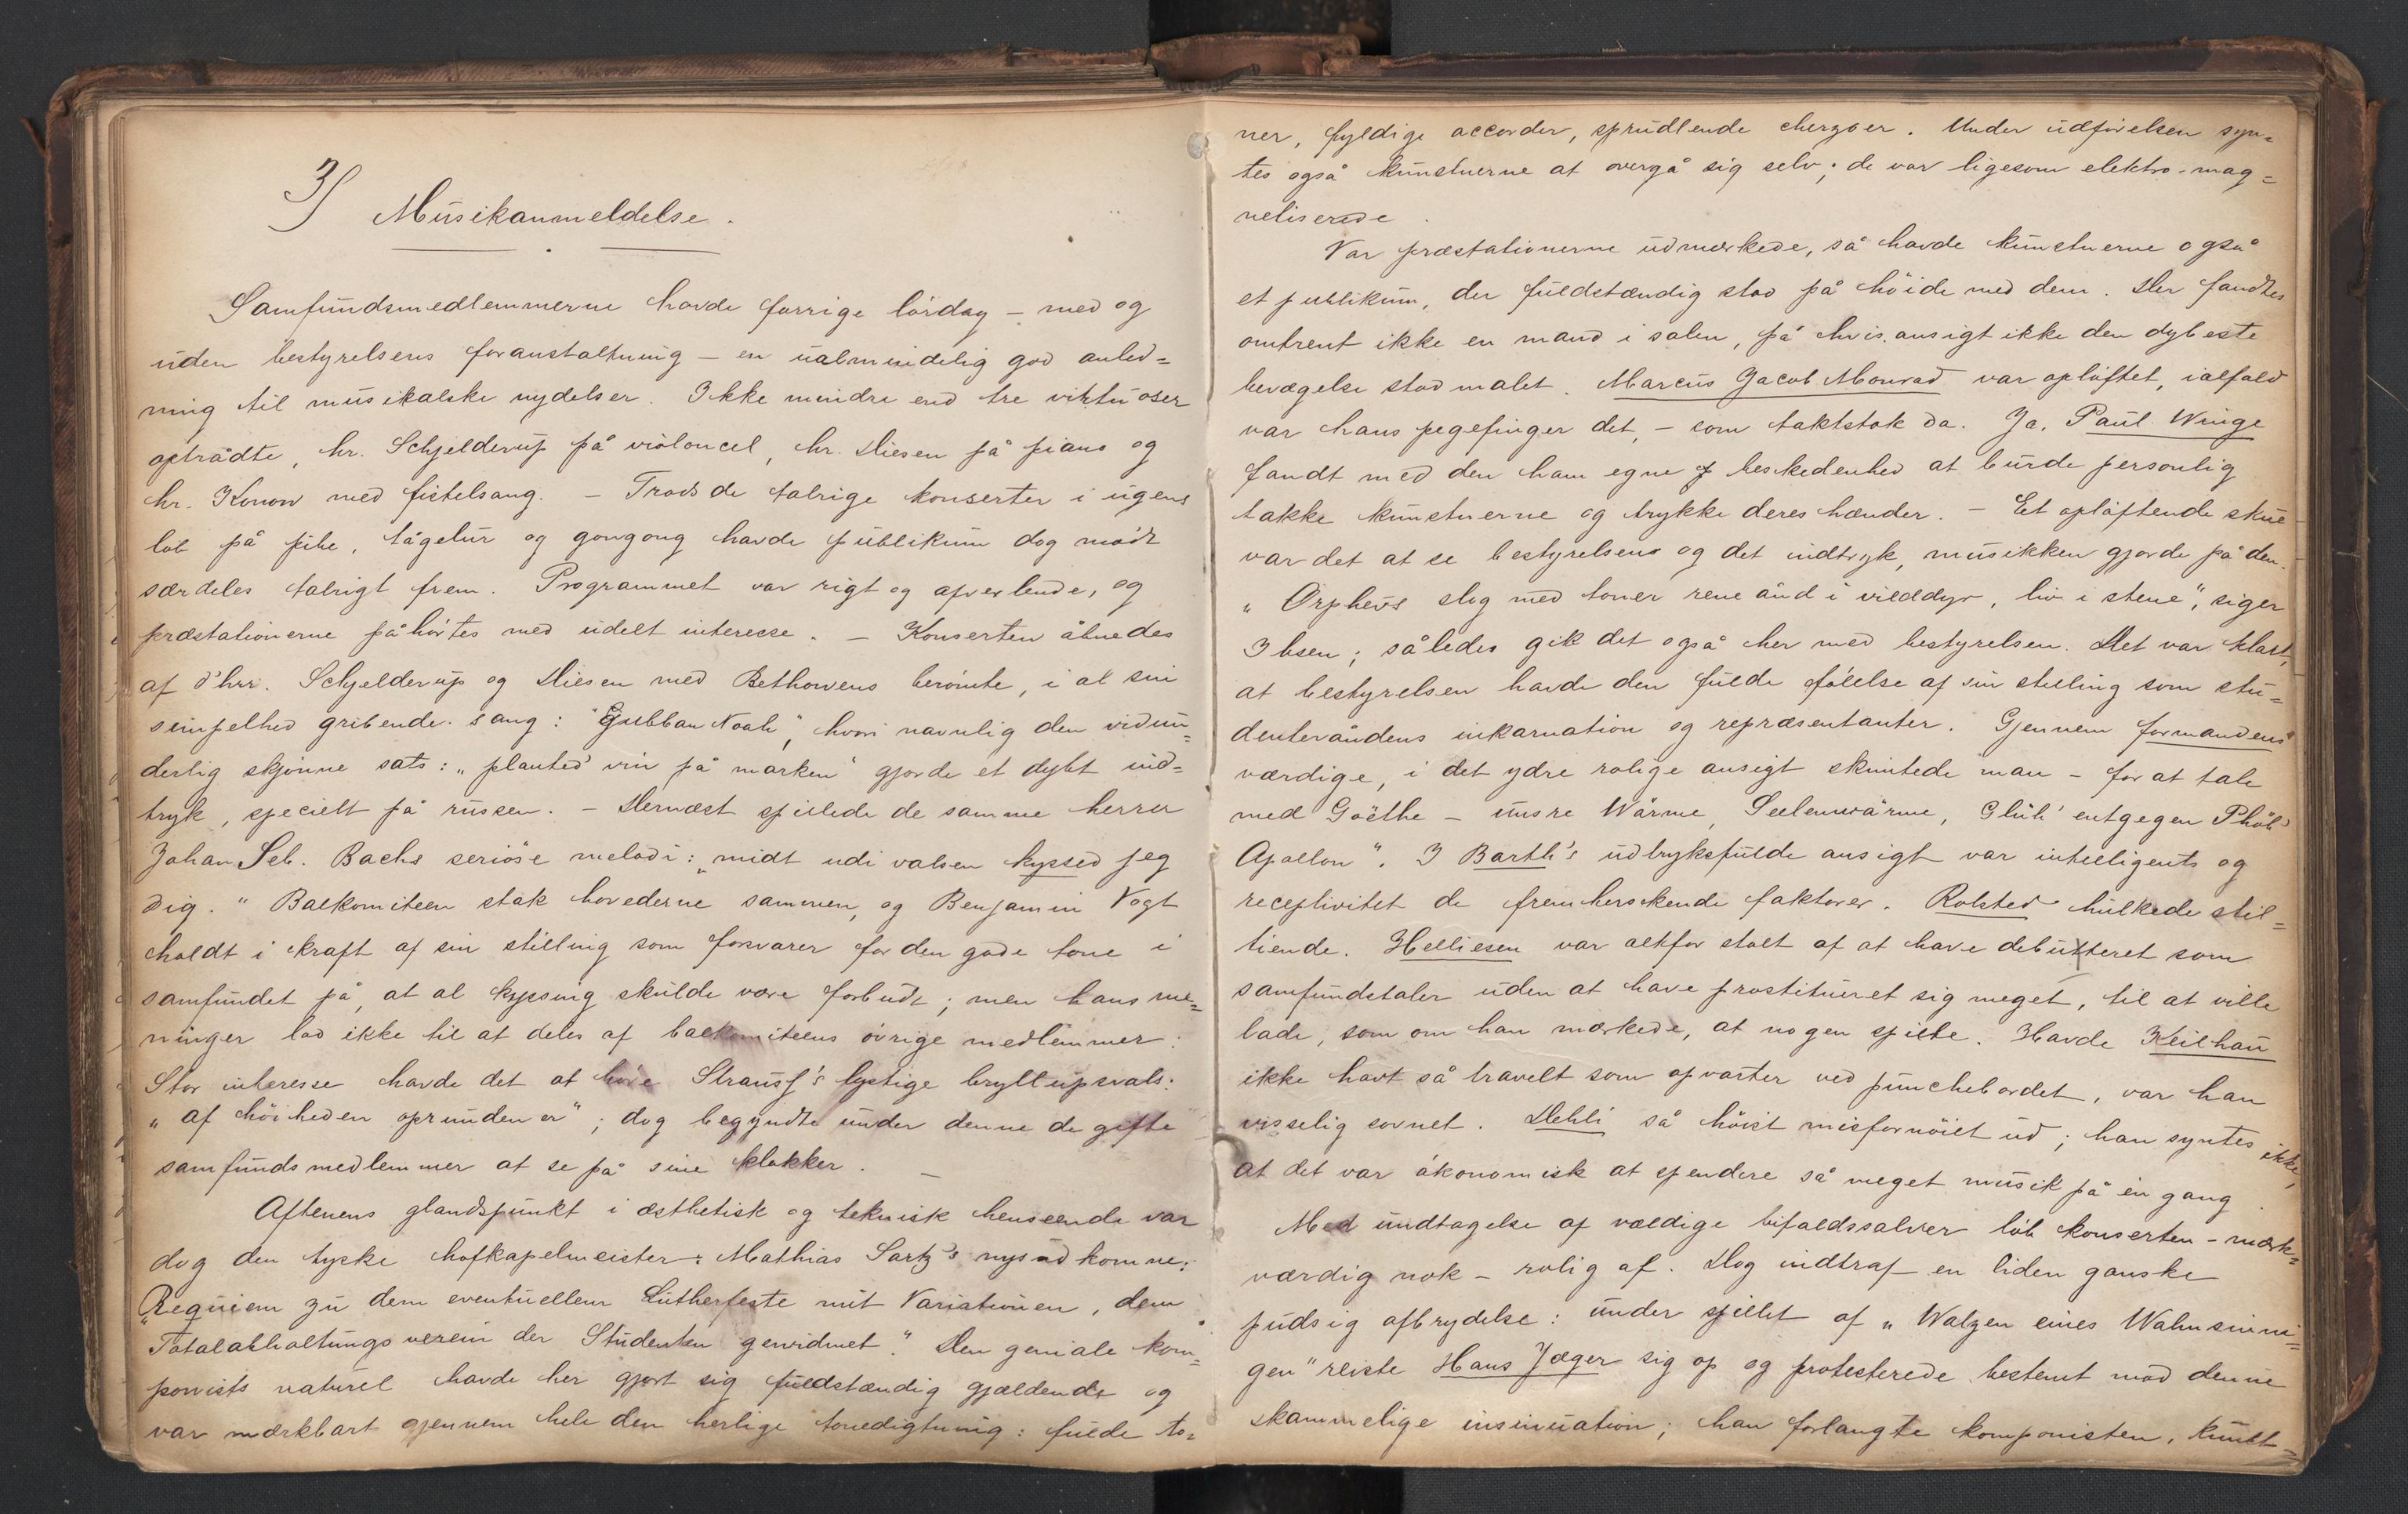 3/ Musikanmeldelse.
Samfundsmedlemmerne havde forrige lørdag – med og
uden bestyrelsens foranstaltning – en ualmindelig god anled=
ning til musikalske nydelser. Ikke mindre end tre virtuoser
optrådte, hr. Schjelderup på violoncel, hr. Diesen på piano og
hr. Konow med fistelsang. – Trods de talrige konserter i ugens
løb på pibe, tågelur og gongong havde publikum dog mødt
særdeles talrigt frem. Programmet var rigt og afvexlende, og
præstationerne påhørtes med udelt interesse. – Konserten åbnedes
af d'hrr. Schjelderup og Diesen med Bethowens berømte, i al sin
simpelhed gribende sang: "Gubban Noah", hvori navnlig den vidun=
derlig skjønne sats: „planted' vin på marken" gjorde et dybt ind=
tryk, specielt på russen. – Dernæst spillede de samme herrer
Johan Seb. Bachs seriøse melodi: „midt udi valsen kyssed jeg
dig." Balkomiteen stak hovederne sammen, og Benjamin Vogt
holdt i kraft af sin stilling som forsvarer for den gode tone i
samfundet på, at al kyssing skulde være forbudt; men hans me=
ninger lod ikke til at deles af balkomiteens øvrige medlemmer.
Stor interesse havde det at høre Strauss's lystige bryllupsvals:
„af høiheden oprunden er"; dog begyndte under denne de gifte
samfundsmedlemmer at se på sine klokker. –
Aftenens glandspunkt i æsthetisk og teknisk henseende var
dog den tyske hofkapelmeister: Mathias Sartz's nysudkomne:
„Requiem zu dem eventuellem Lutherfeste mit Variationen, dem
Totalabhaltungsverein der Studenten gewidmet." Den geniale kom=
ponists naturel havde her gjort sig fuldstændig gjældende og
var mærkbart gjennem hele den herlige tonedigtning: fulde to=
ner, fyldige accorder, sprudlende cherzoer. Under udførelsen syn=
tes også kunstnerne at overgå sig selv; de var ligesom elektro-mag=
netiserede.
Var præstationerne udmærkede, så havde kunstnerne også
et publikum, der fuldstændig stod på høide med dem. Der fandtes
omtrent ikke en mand i salen, på hvis ansigt ikke den dybeste
bevægelse stod malet. Marcus Jacob Monrad var opløftet, ialfald
var hans pegefinger det, – som taktstok da. Ja, Paul Winge
fandt med den ham egne beskedenhed at burde personlig
takke kunstnerne og trykke deres hænder. – Et opløftende skue
var det at se bestyrelsens og det indtryk, musikken gjorde på den.
„Orpheus slog med toner rene ånd i vilddyr, liv i stene", siger
Ibsen; således gik det også her med bestyrelsen. Det var klart,
at bestyrelsen havde den fulde følelse af sin stilling som stu=
denteråndens inkarnation og repræsentanter. Gjennem formandens
værdige, i det ydre rolige ansigt skimtede man – for at tale
med Göethe – unsre Wärme, Seelenwärme, Glüh' entgegen Phöb'
Apollon". I Barth's udtryksfulde ansigt var intelligents og
receptivitet de fremherskende faktorer. Rolsted hulkede stil=
tiende. Helliesen var altfor stolt af at have debutteret som
samfundstaler uden at have prostitueret sig meget, til at ville
lade, som om han mærkede, at nogen spilte. Havde Keilhau
ikke havt så travelt som opvarter ved punchebordet, var han
visselig sovnet. Dehli så høist misfornøiet ud; han syntes ikke,
at det var økonomisk at spendere så meget musik på én gang.
Med undtagelse af vældige bifaldssalver løb konserten – mærk=
værdig nok – rolig af. Dog indtraf en liden ganske
pudsig afbrydelse: under spillet af „Walzen eines Wahnsinni=
gen" reiste Hans Jæger sig op og protesterede bestemt mod denne
skammelige insinuation; han forlangte komponisten,